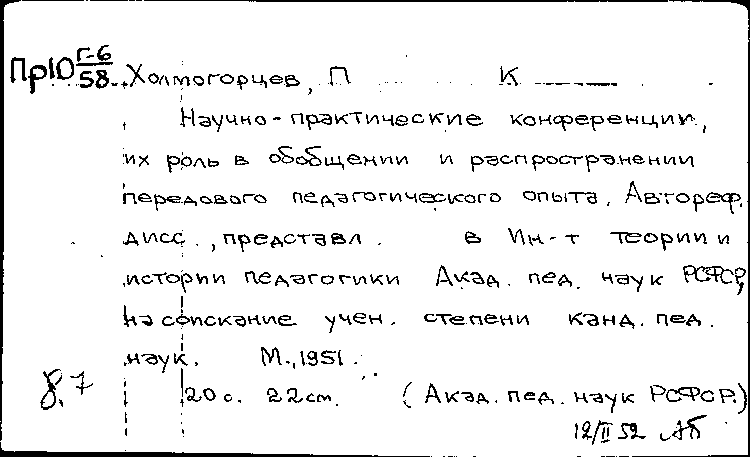 Пр10 Г-6/58 Холмогорцев, П К
Научно-практические конференции,
их роль в обобщении и распространении
передового педагогического опыта. Автореф.
дисс., представл. в Ин-т теории и
истории педагогики Акад. пед. наук РСФСР,
на соискание учен. степени канд. пед.
наук. М., 1951.
20 с. 22 см. (Акад. пед. наук РСФСР.)
8.7
12/II 52 Аб